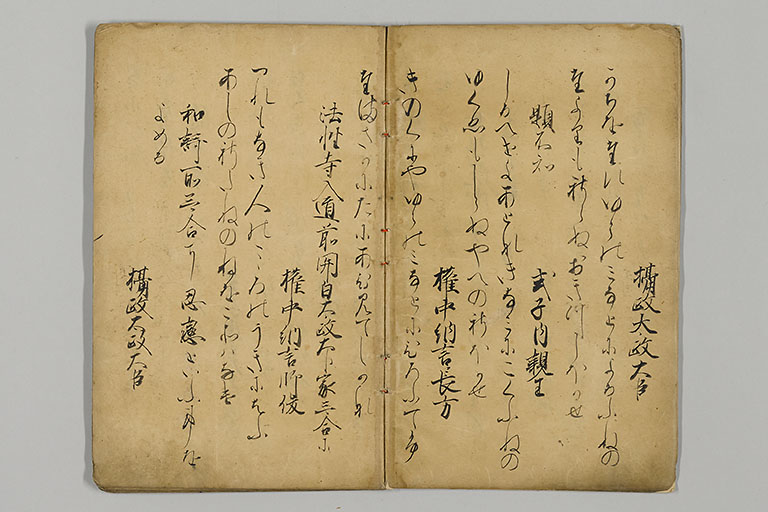 摂政太政大臣
かちをたえゆらのみなとによるふねの
たよりもしらぬおきつしほかせ
題不知
式子内親王
しるへせよあとなきなみにこくふねの
ゆくゑもしらぬやへのしほかせ
権中納言長方
きのくにやゆらのみなとにひろふてふ
たまさかにたにあひみてしかな
法性寺入道前関白太政大臣家哥合に
権中納言師俊
つれもなき人のこゝろのうきにはふ
あしのしたねのねをこそはなけ
和哥所哥合に忍戀といふ事を
よめる
摂政太政大臣